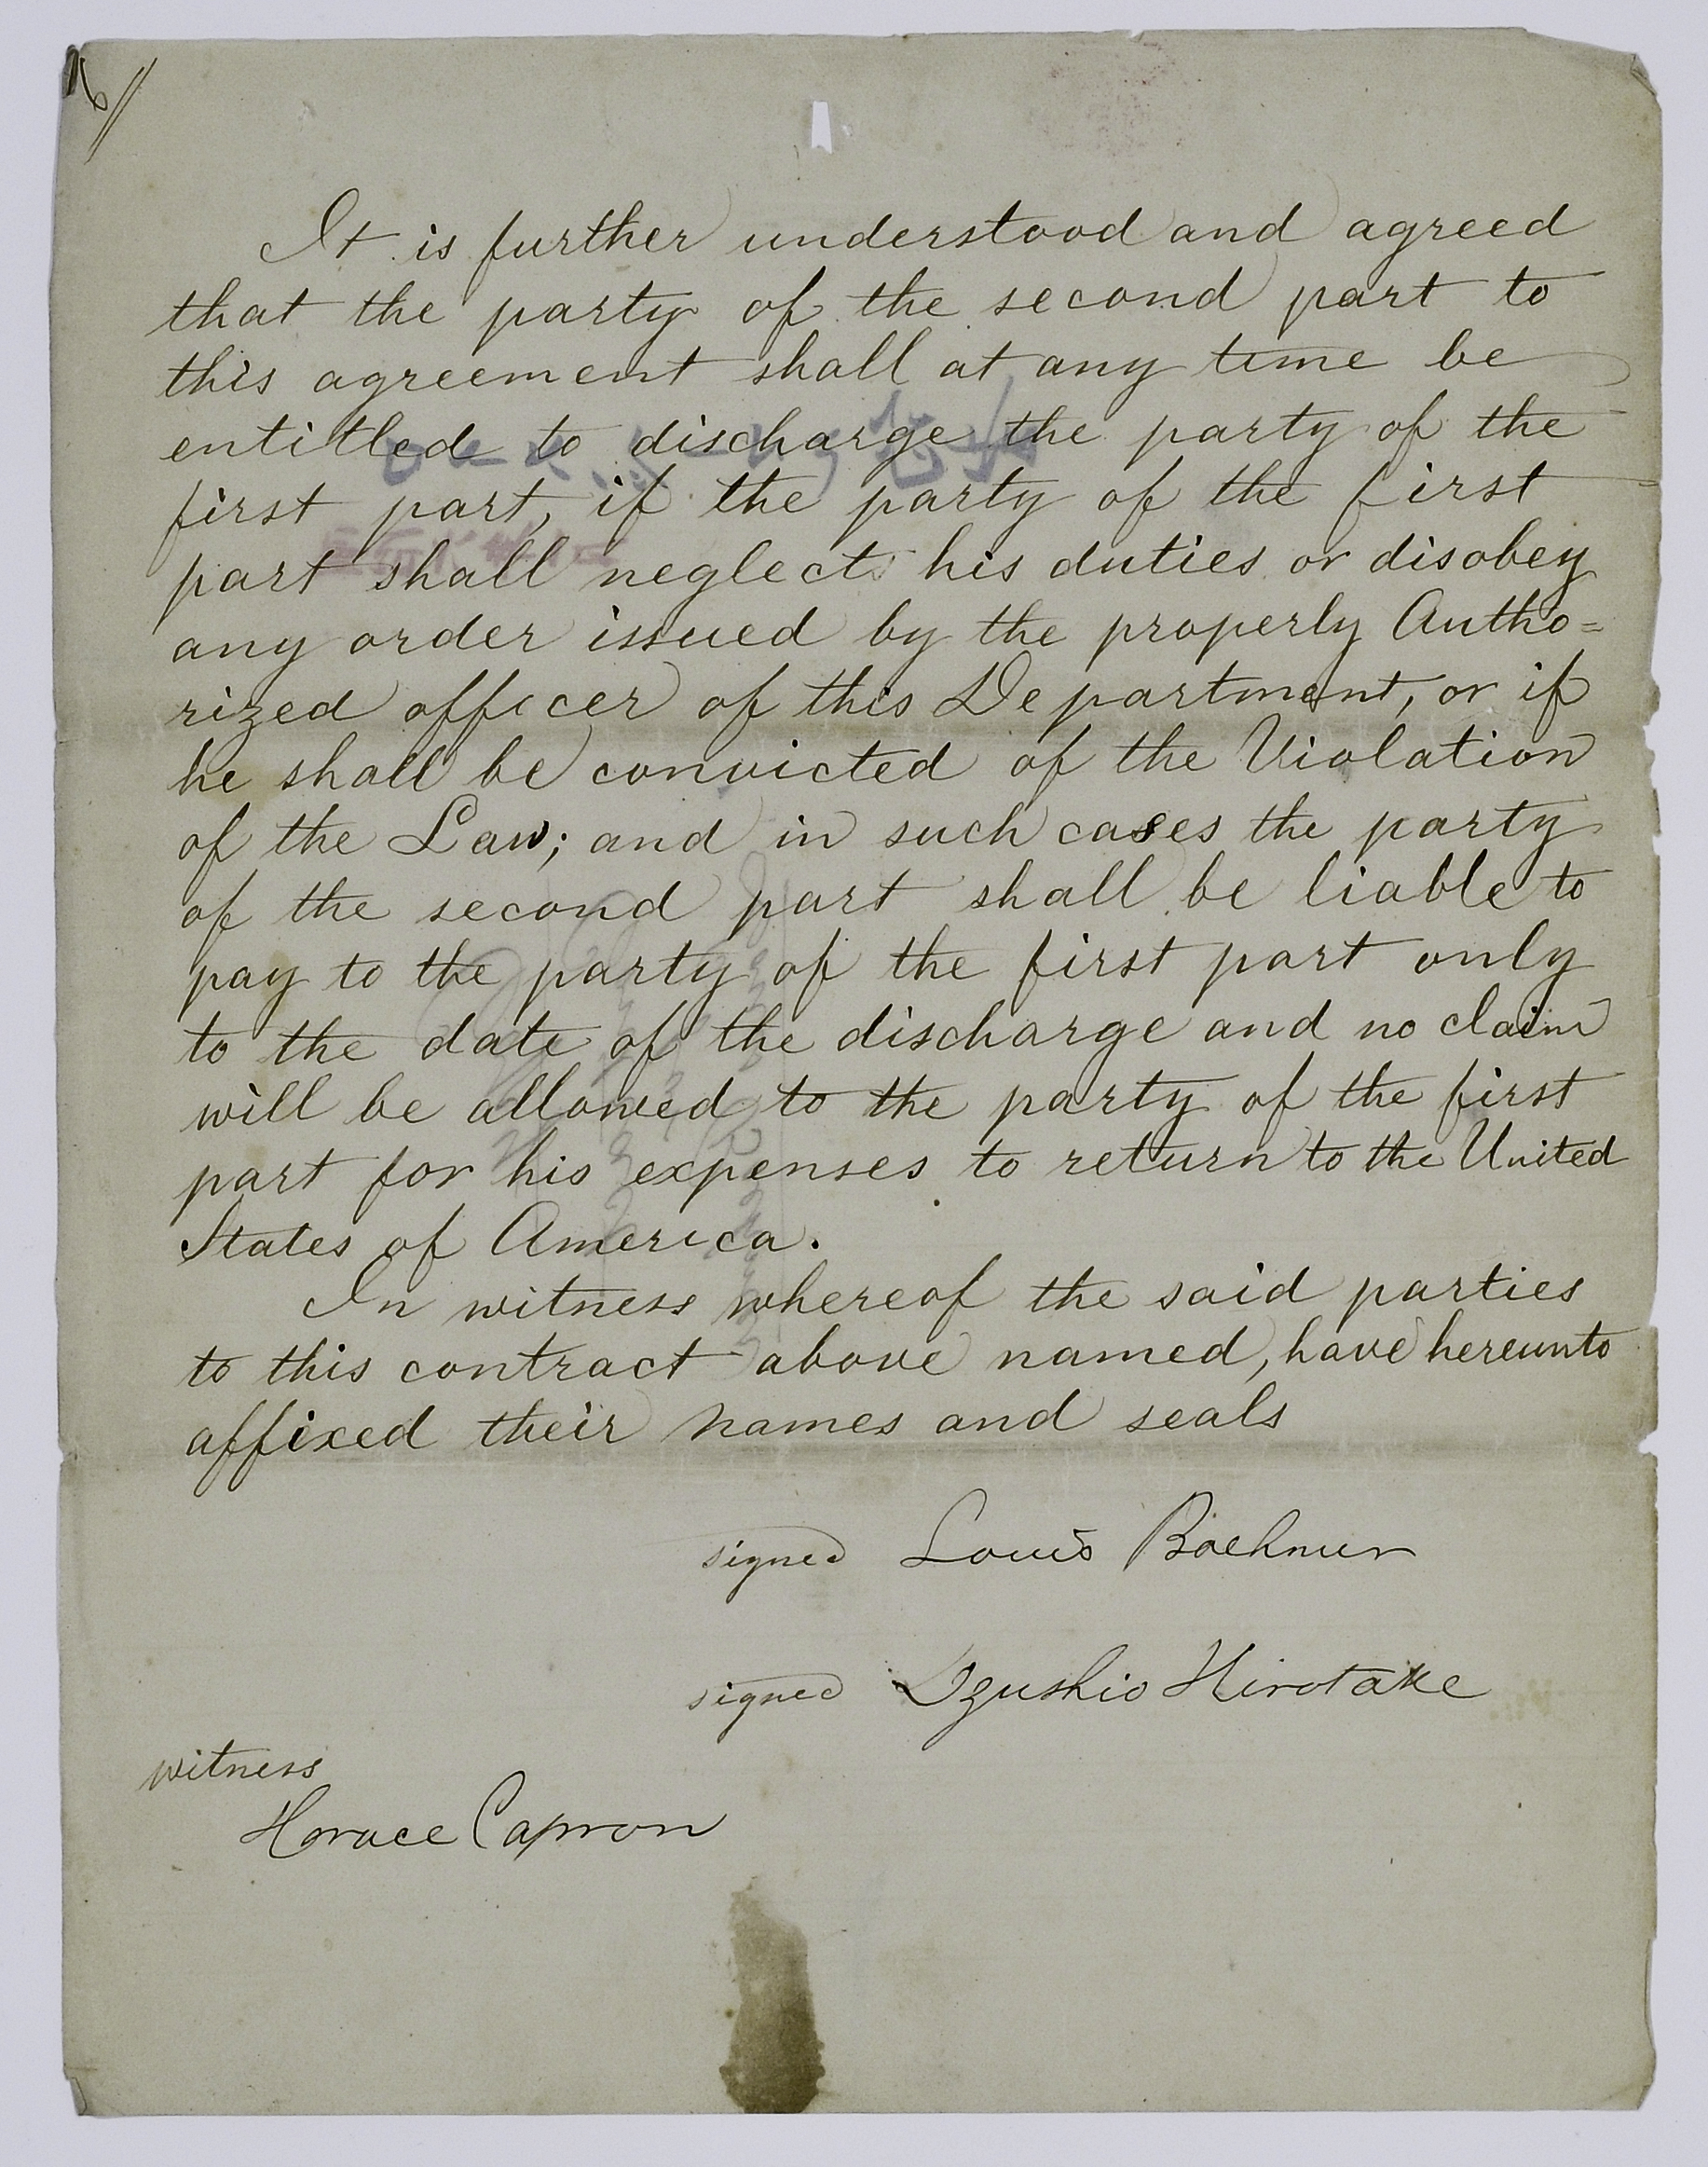 It is further understood and agreed
that the party of the second part to
this agreement shall at any time be
entitled to discharge the party of the
first part, if the party of the first
part shall neglect his duties or disobey
any order issued by the properly Autho=
rized officer of this Department, or if
he shall be convicted of the Violation
of the Law; and in such cases the party
of the second part shall be liable to
pay to the party of the first part only
to the date of the discharge and no claim
will be allowed to the party of the first
part for his expenses to return to the United
States of America.
In witness whereof the said parties
to this contract above named, have hereunto
affixed their names and seals
signed Louis Boehmer
signed Yzushio Hirotake
witness
Horace Capron